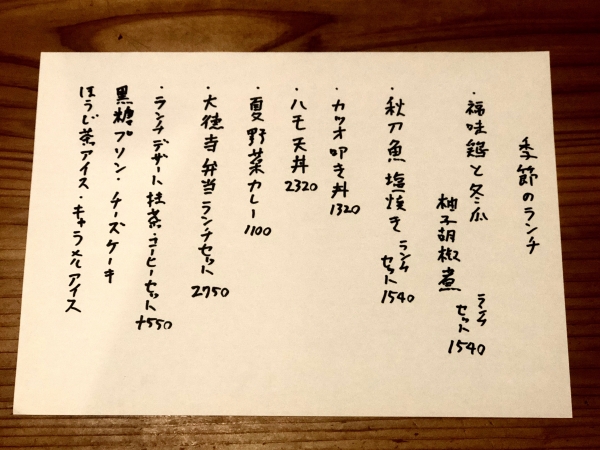 季節のランチ
・福味鶏と冬瓜
柚子胡椒煮 ランチセット 1540
・秋刀魚塩焼き ランチセット 1540
・カツオ叩き丼 1320
・ハモ天丼 2320
・夏野菜カレー 1100
・大徳寺弁当ランチセット 2750
・ランチデザート 抹茶・コーヒーセット +550
黒糖プリン・チーズケーキ
ほうじ茶アイス・キャラメルアイス